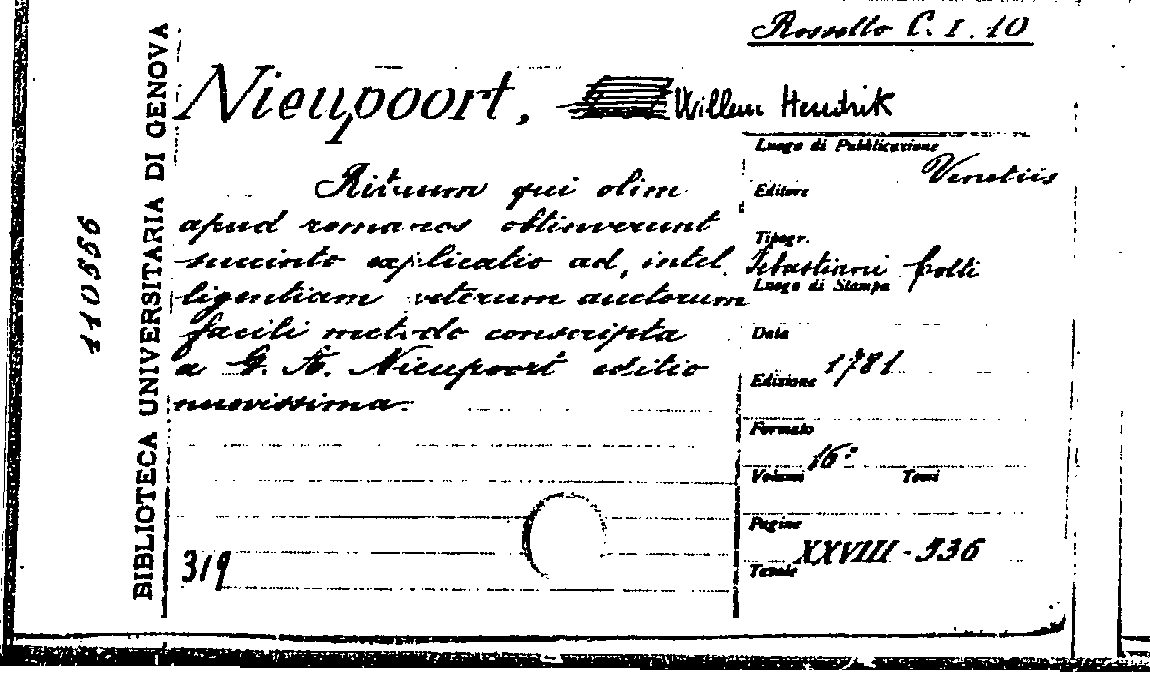 Rossetto C. I. 10
Nieupoort, Willem Hendrik
Rituum qui olim
apud romanos obtinuerunt
succinto explicatio ad, intel
ligentiam veterum auctorum
facili metodo conscripta
a G. H. Nieupoort editio
nuovissima.
319
Luogo di Pubblicazione
Venetiis
Editore
Tipogr.
Sebastiani Colti
Luogo di Stampa
Data
1781
Edizione
Formato
16°
Volumi Tomi
Pagine
XXVIII - 536
Tavole
BIBLIOTECA UNIVERSITARIA DI GENOVA
110556